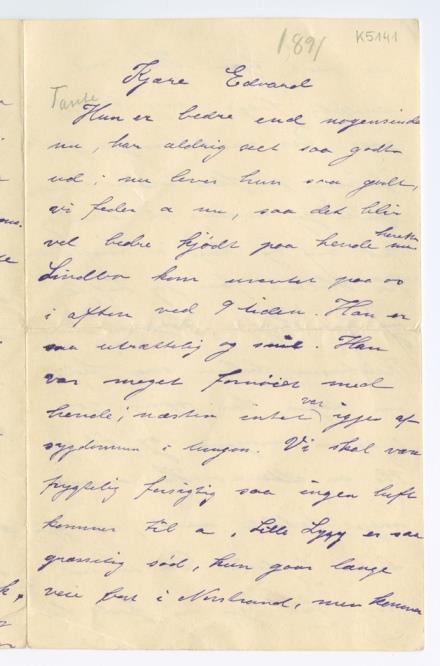 189/
K5141
Kjære Edvard
Tante
Hun er bedre end nogensinde
nu, har aldrig seet saa godt
ud; nu lever hun saa godt,
vi feder a nu, saa det blir
vel bedre kjødt paa hende herefter
Lindboe kom uventet paa os
i aften ved 9 tiden. Han er
saa utrættelig og snil. Han
var meget fornøiet med
hende; næsten intet var igjen af
sygdommen i lungen. Vi skal være
frygtelig forsigtig saa ingen luft
kommer til a, Lille Lyyy er saa
græsselig sød, hun gaar lange
veie bort i Norstrand, men kommer